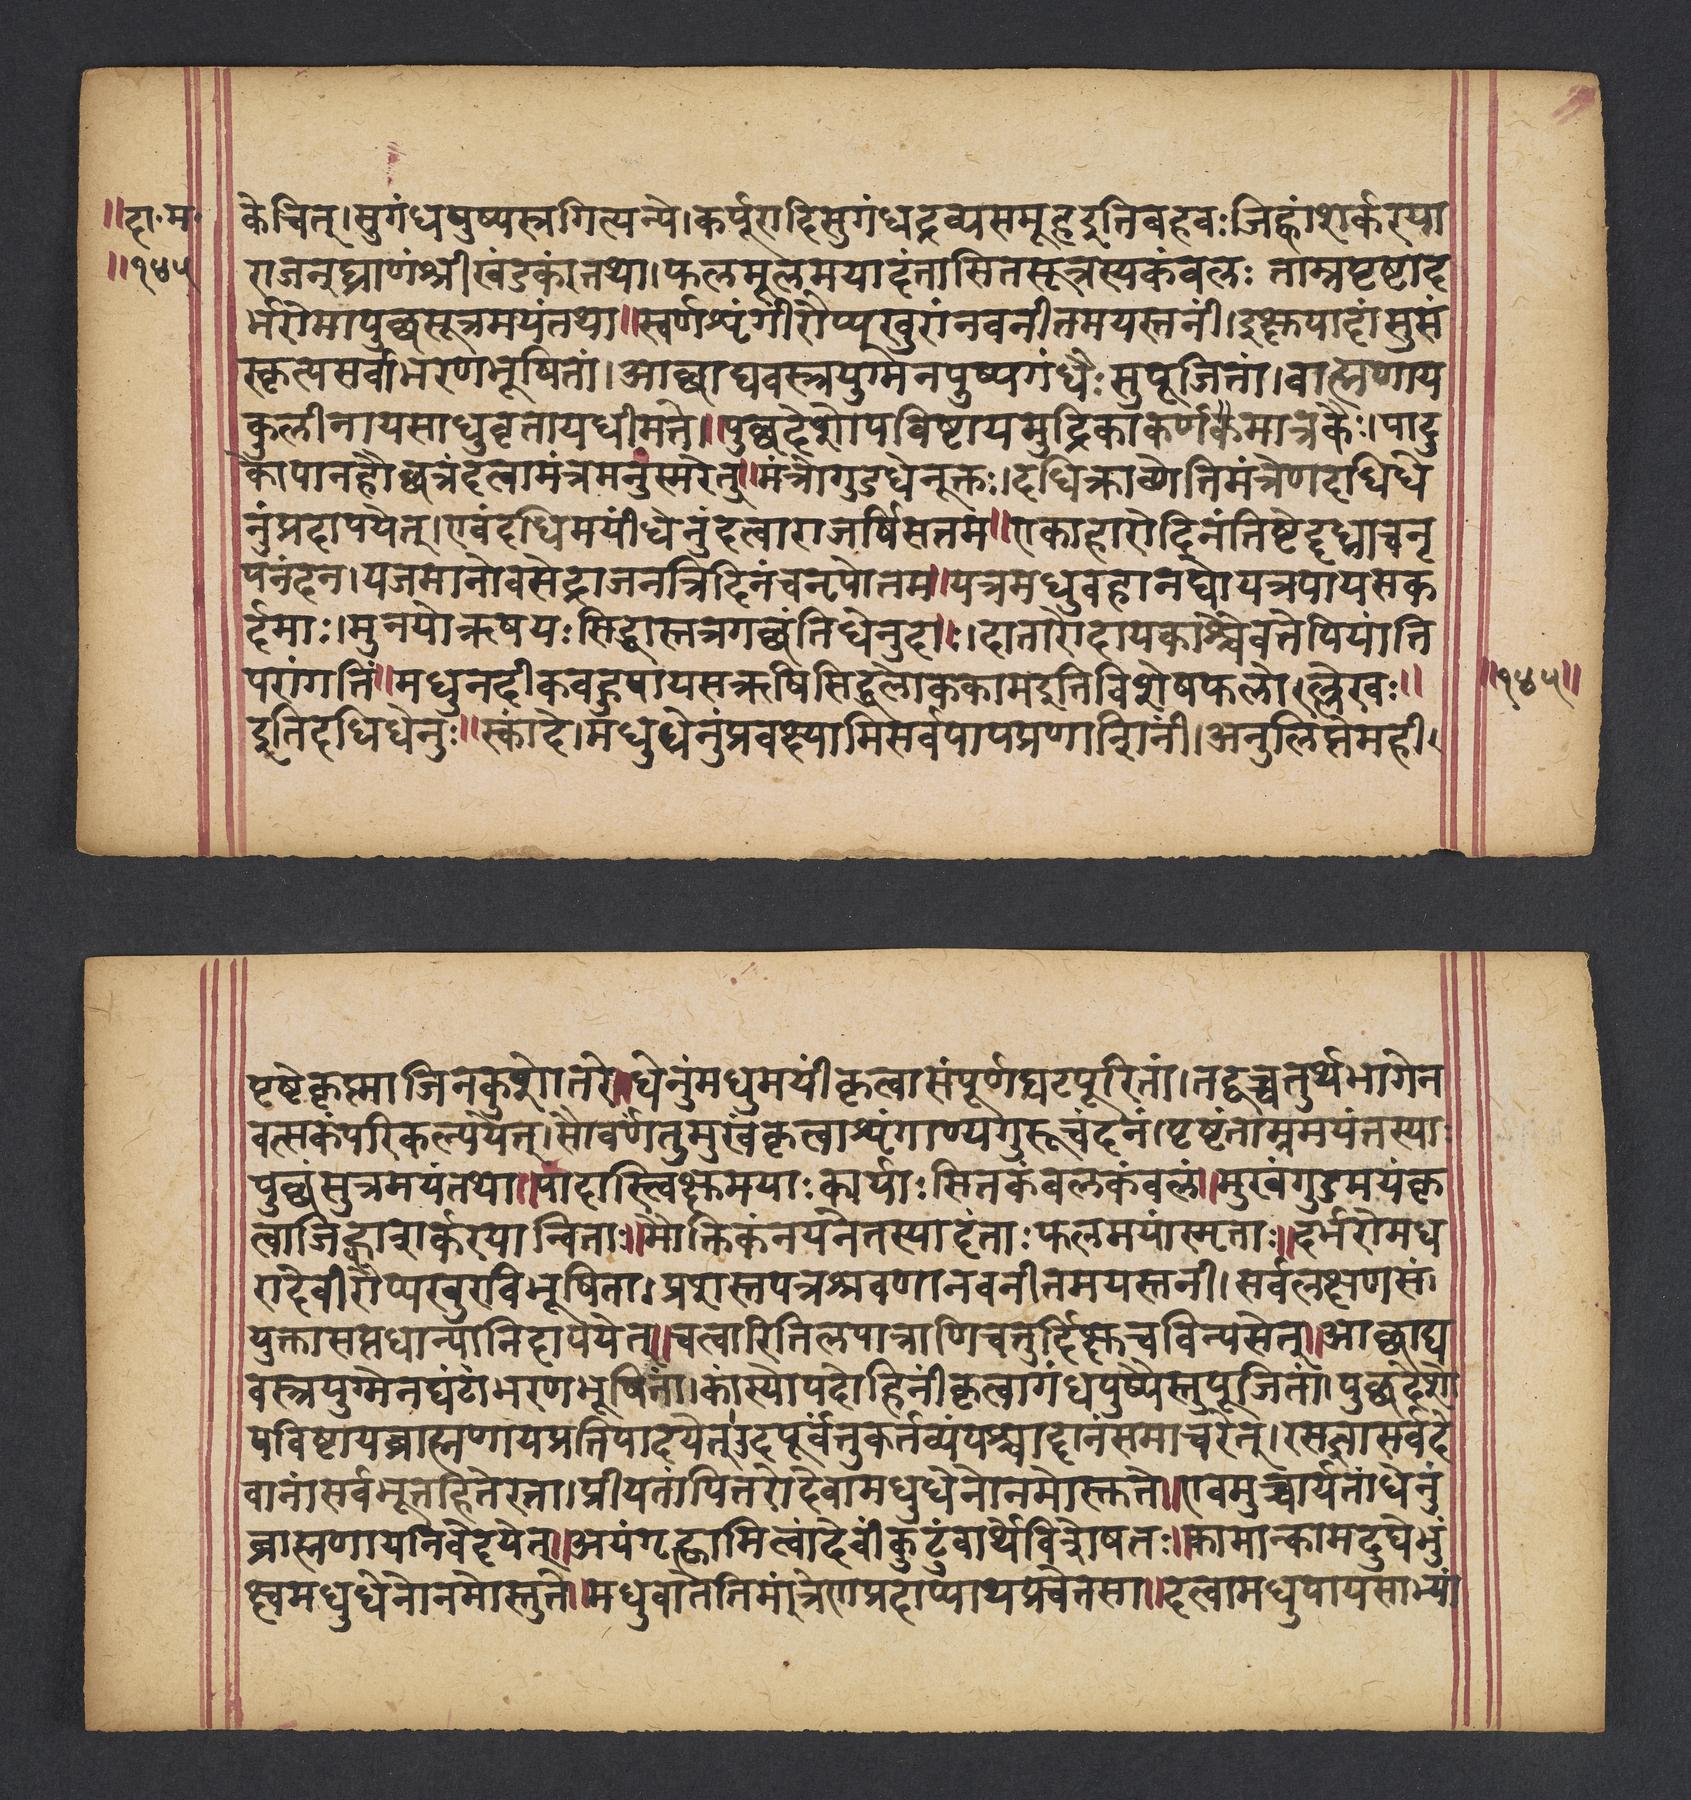 ॥दा॰म॰
॥१४५
केचित्।सुगंधपुष्पस्नगित्यन्ये।कर्पूरादिसुगंधद्रव्यसमूहइतिबहवः जिह्वांशर्करया
राजन्घ्राणंश्रीखंडकांतथा।फलमूलमयादंतासितसूत्रस्यकंबलः ताम्रपृष्टाद
र्भरोमापुछसूत्रमयंतथा॥स्वर्णशृंगीरौप्यखुरांनवनीतमयस्तनीं।इक्षुपादांसुसं
स्कृत्यसर्वाभरणभूषितां।आछाद्यवस्त्रयुग्मेनपुष्पगंधैः सुपूजितां।ब्राह्मणाय
कुलीनायसाधुवृत्तायधीमते॥पुछदेशोपविष्टायमुद्रिकाकर्णकैमात्रकैः।पादु
कोपानहौछत्रंदत्वामंत्रमनुस्मरेत्॥मंत्रोगुडधेनूक्तः।दधिक्राव्णेतिमंत्रेणदधिधे
नुंप्रदापयेत्।एवंदधिमयींधेनुंदत्वाराजर्षिसत्तम॥एकाहारोदिनंतिष्टेद्दध्नाचनृ
पनंदन।यजमानोवसेद्राजनत्रिदिनंचनृपोत्तम॥यत्रमधुवहानद्योयत्रपायसक
र्दमाः।मुनयोऋषयः सिद्धास्तत्रगछंतिधेनुदाः।दातारोदायकाश्चैवतेपियांति
परांगतिं॥मधुनदीकबहुपायसऋषिसिद्धलोककामइतिविशेषफलोल्लेखः॥
॥१४५॥
इतिदधिधेनुः॥स्कांदे।मधुधेनुंप्रवक्ष्यामिसर्वपापप्रणाशिनीं।अनुलिप्तेमही
पृष्टेकृष्णाजिनकुशोतरे॥धेनुंमधुमयींकृत्वासंपूर्णघटपूरितां।तद्वच्चतुर्थभागेन
वत्सकंपरिकल्पयेत्।सौवर्णंतुमुखंकृत्वाशृंगाण्यगुरुचंदनं।पृष्टंताम्रमयंतस्याः
पुछंसुत्रमयंतथा॥पादास्त्विक्षुमयाः कार्याः सितकंबलकंबलं॥मुखंगुडमयंकृ
त्वाजिह्वाशर्करयान्विताः॥मौक्तिकंनयनेतस्यादंताः फलमयास्मृताः॥दर्भरोमध
रादेवीरौप्यखुरविभूषिता।प्रशस्तपत्रश्रवणानवनीतमयस्तनी।सर्वलक्षणसं
युक्तासप्तधान्यानिदापयेत्॥चत्वारितिलपात्राणिचतुर्दिक्षुचविन्यसेत्॥आछाद्य
वस्त्रयुग्मेनघंटाभरणभूषितां।कांस्योपदोहिनींकृत्वागंधपुष्पैस्तुपूजितां।पुछदेशो
पविष्टायब्राह्मणायप्रतिपादयेत्।उदपूर्वंतुकर्तव्यंपश्चाद्दानंसमाचरेत्।रसज्ञासर्वदे
वानांसर्वभूतहितेरता।प्रीयतांपितरोदेवामधुधेनोनमोस्तुते॥एवमुच्चार्यतांधेनुं
ब्राह्मणायनिवेदयेत्॥अयंगृह्णामित्वांदेवींकुटुंबार्थेविशेषतः॥कामान्कामदुघेभुं
क्ष्वमधुधेनोनमोस्तुते॥मधुवातेतिमंत्रेणप्रदाप्याथप्रचेतसा॥दत्वामधुपायसाभ्यां